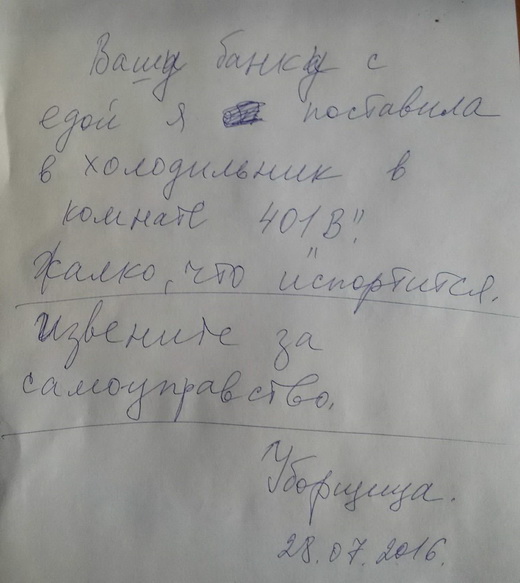 Вашу банку с
едой я поставила
в холодильник в
комнате 401 В".
Жалко, что "испортится.
Извените за
самоуправство.
Уборщица.
28.07.2016.